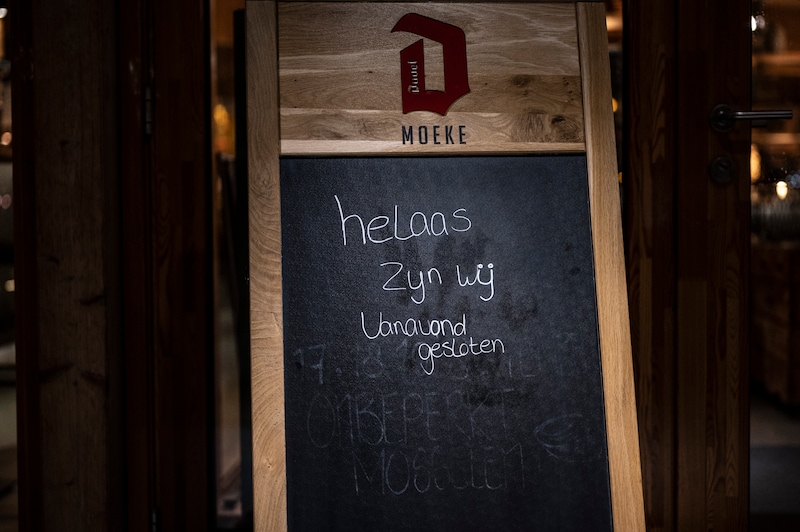 Duvel
MOEKE
helaas
zyn wij
Vanavond
gesloten
17. 18
ONBEPERKT
MOSSELEN